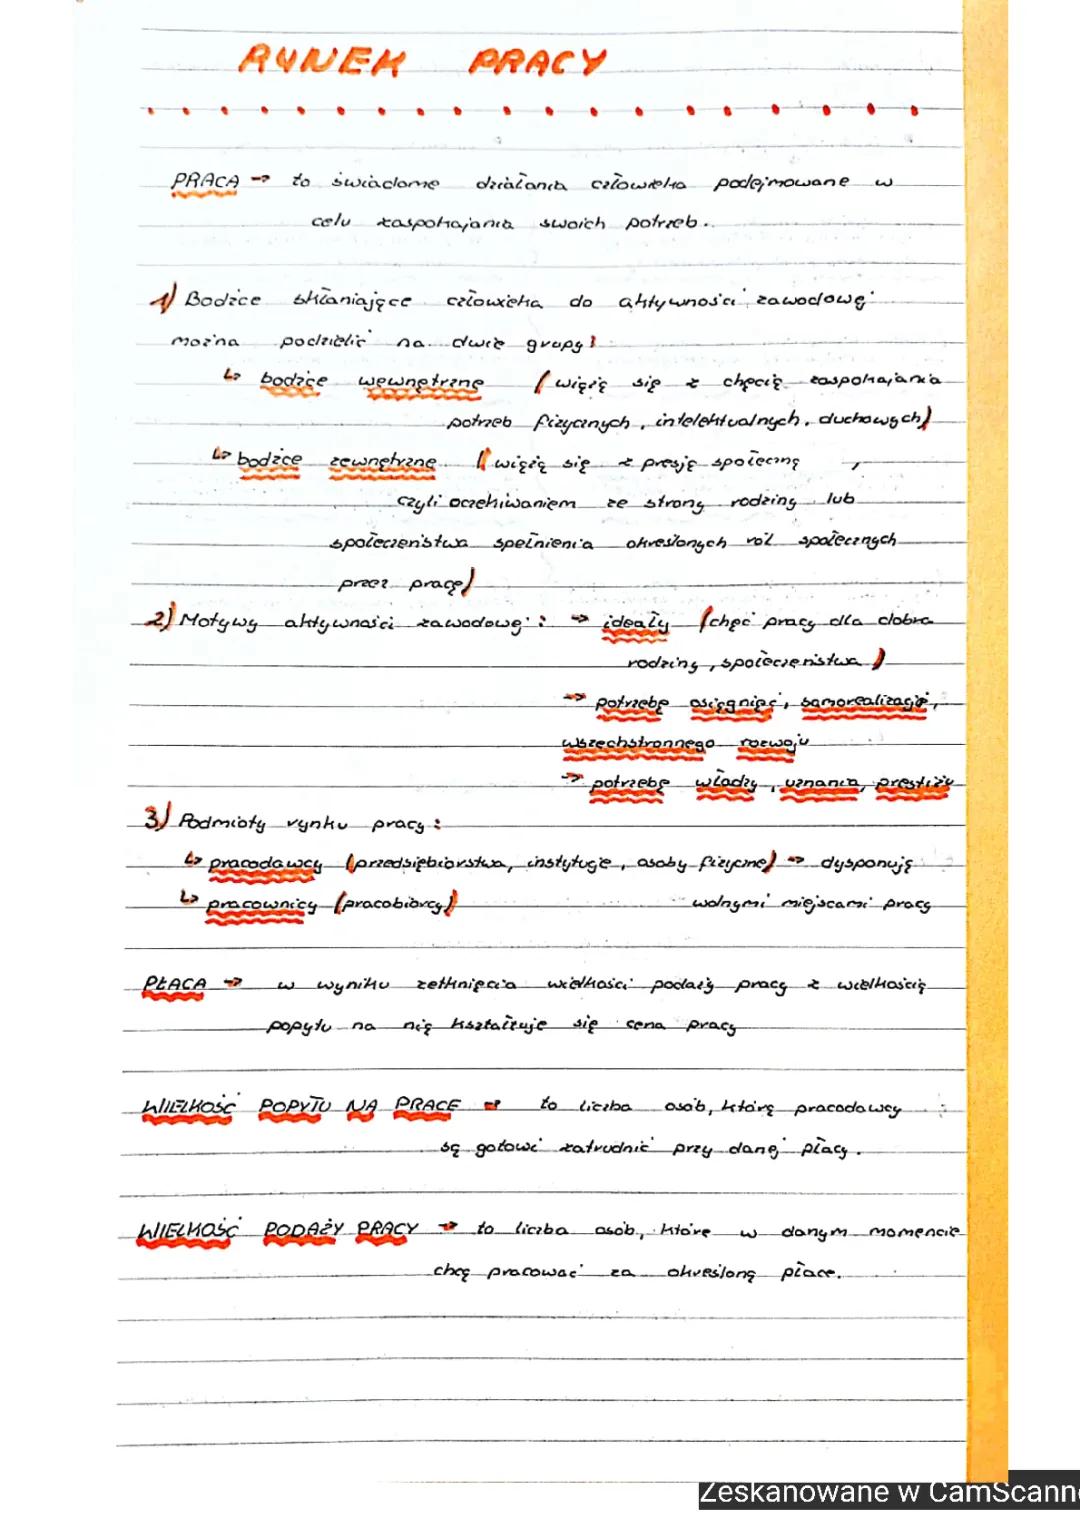 RYNEK PRACY
PRACA → to świadome działania człowieka podejmowane w
celu zaspokajania swoich potrzeb.
1) Bodźce skłaniające człowieka do aktywności zawodowej
można podzielić na dwie grupy:
↳ bodźce wewnętrzne (wiążą się z chęcią zaspokajania
potrzeb fizycznych, intelektualnych, duchowych)
↳ bodźce zewnętrzne (wiążą się z presją społeczną,
czyli oczekiwaniem ze strony rodziny lub
społeczeństwa spełnienia określonych ról społecznych
przez pracę)
2) Motywy aktywności zawodowej: → ideały (chęć pracy dla dobra
rodziny, społeczeństwa)
→ potrzebę osiągnięć, samorealizacji,
wszechstronnego rozwoju
→ potrzebę władzy, uznania, prestiżu
3) Podmioty rynku pracy:
↳ pracodawcy (przedsiębiorstwa, instytucje, osoby fizyczne) → dysponują
↳ pracownicy (pracobiorcy) wolnymi miejscami pracy
PŁACA → w wyniku zetknięcia wielkości podaży pracy z wielkością
popytu na nią kształtuje się cena pracy
WIELKOŚĆ POPYTU NA PRACĘ → to liczba osób, którą pracodawcy
są gotowi zatrudnić przy danej płacy.
WIELKOŚĆ PODAŻY PRACY → to liczba osób, które w danym momencie
chcą pracować za określoną płace.
Zeskanowane w CamScann